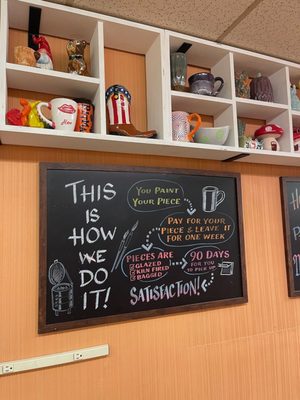 THIS
IS
HOW
WE
DO
IT!
YOU PAINT
YOUR PIECE
PAY FOR YOUR
PIECE & LEAVE IT
FOR ONE WEEK
PIECES ARE
GLAZED
KILN FIRED
BAGGED
90 DAYS
FOR YOU
TO PICK UP
SATISFACTION!